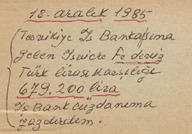 18-aralık 1985
Teşvikiye İş Bankasına
gelen İsviçre Fr. deviz
Türk lirası karşılığı
679.200 lira
İş Bank cüzdanıma
yazdırdım.